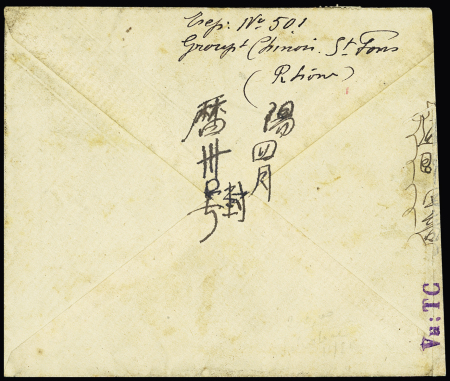 Exp: No 501
Groupt Chinois. St Fons
(Rhône)
陽四月
曆卅号封
Vu: TC